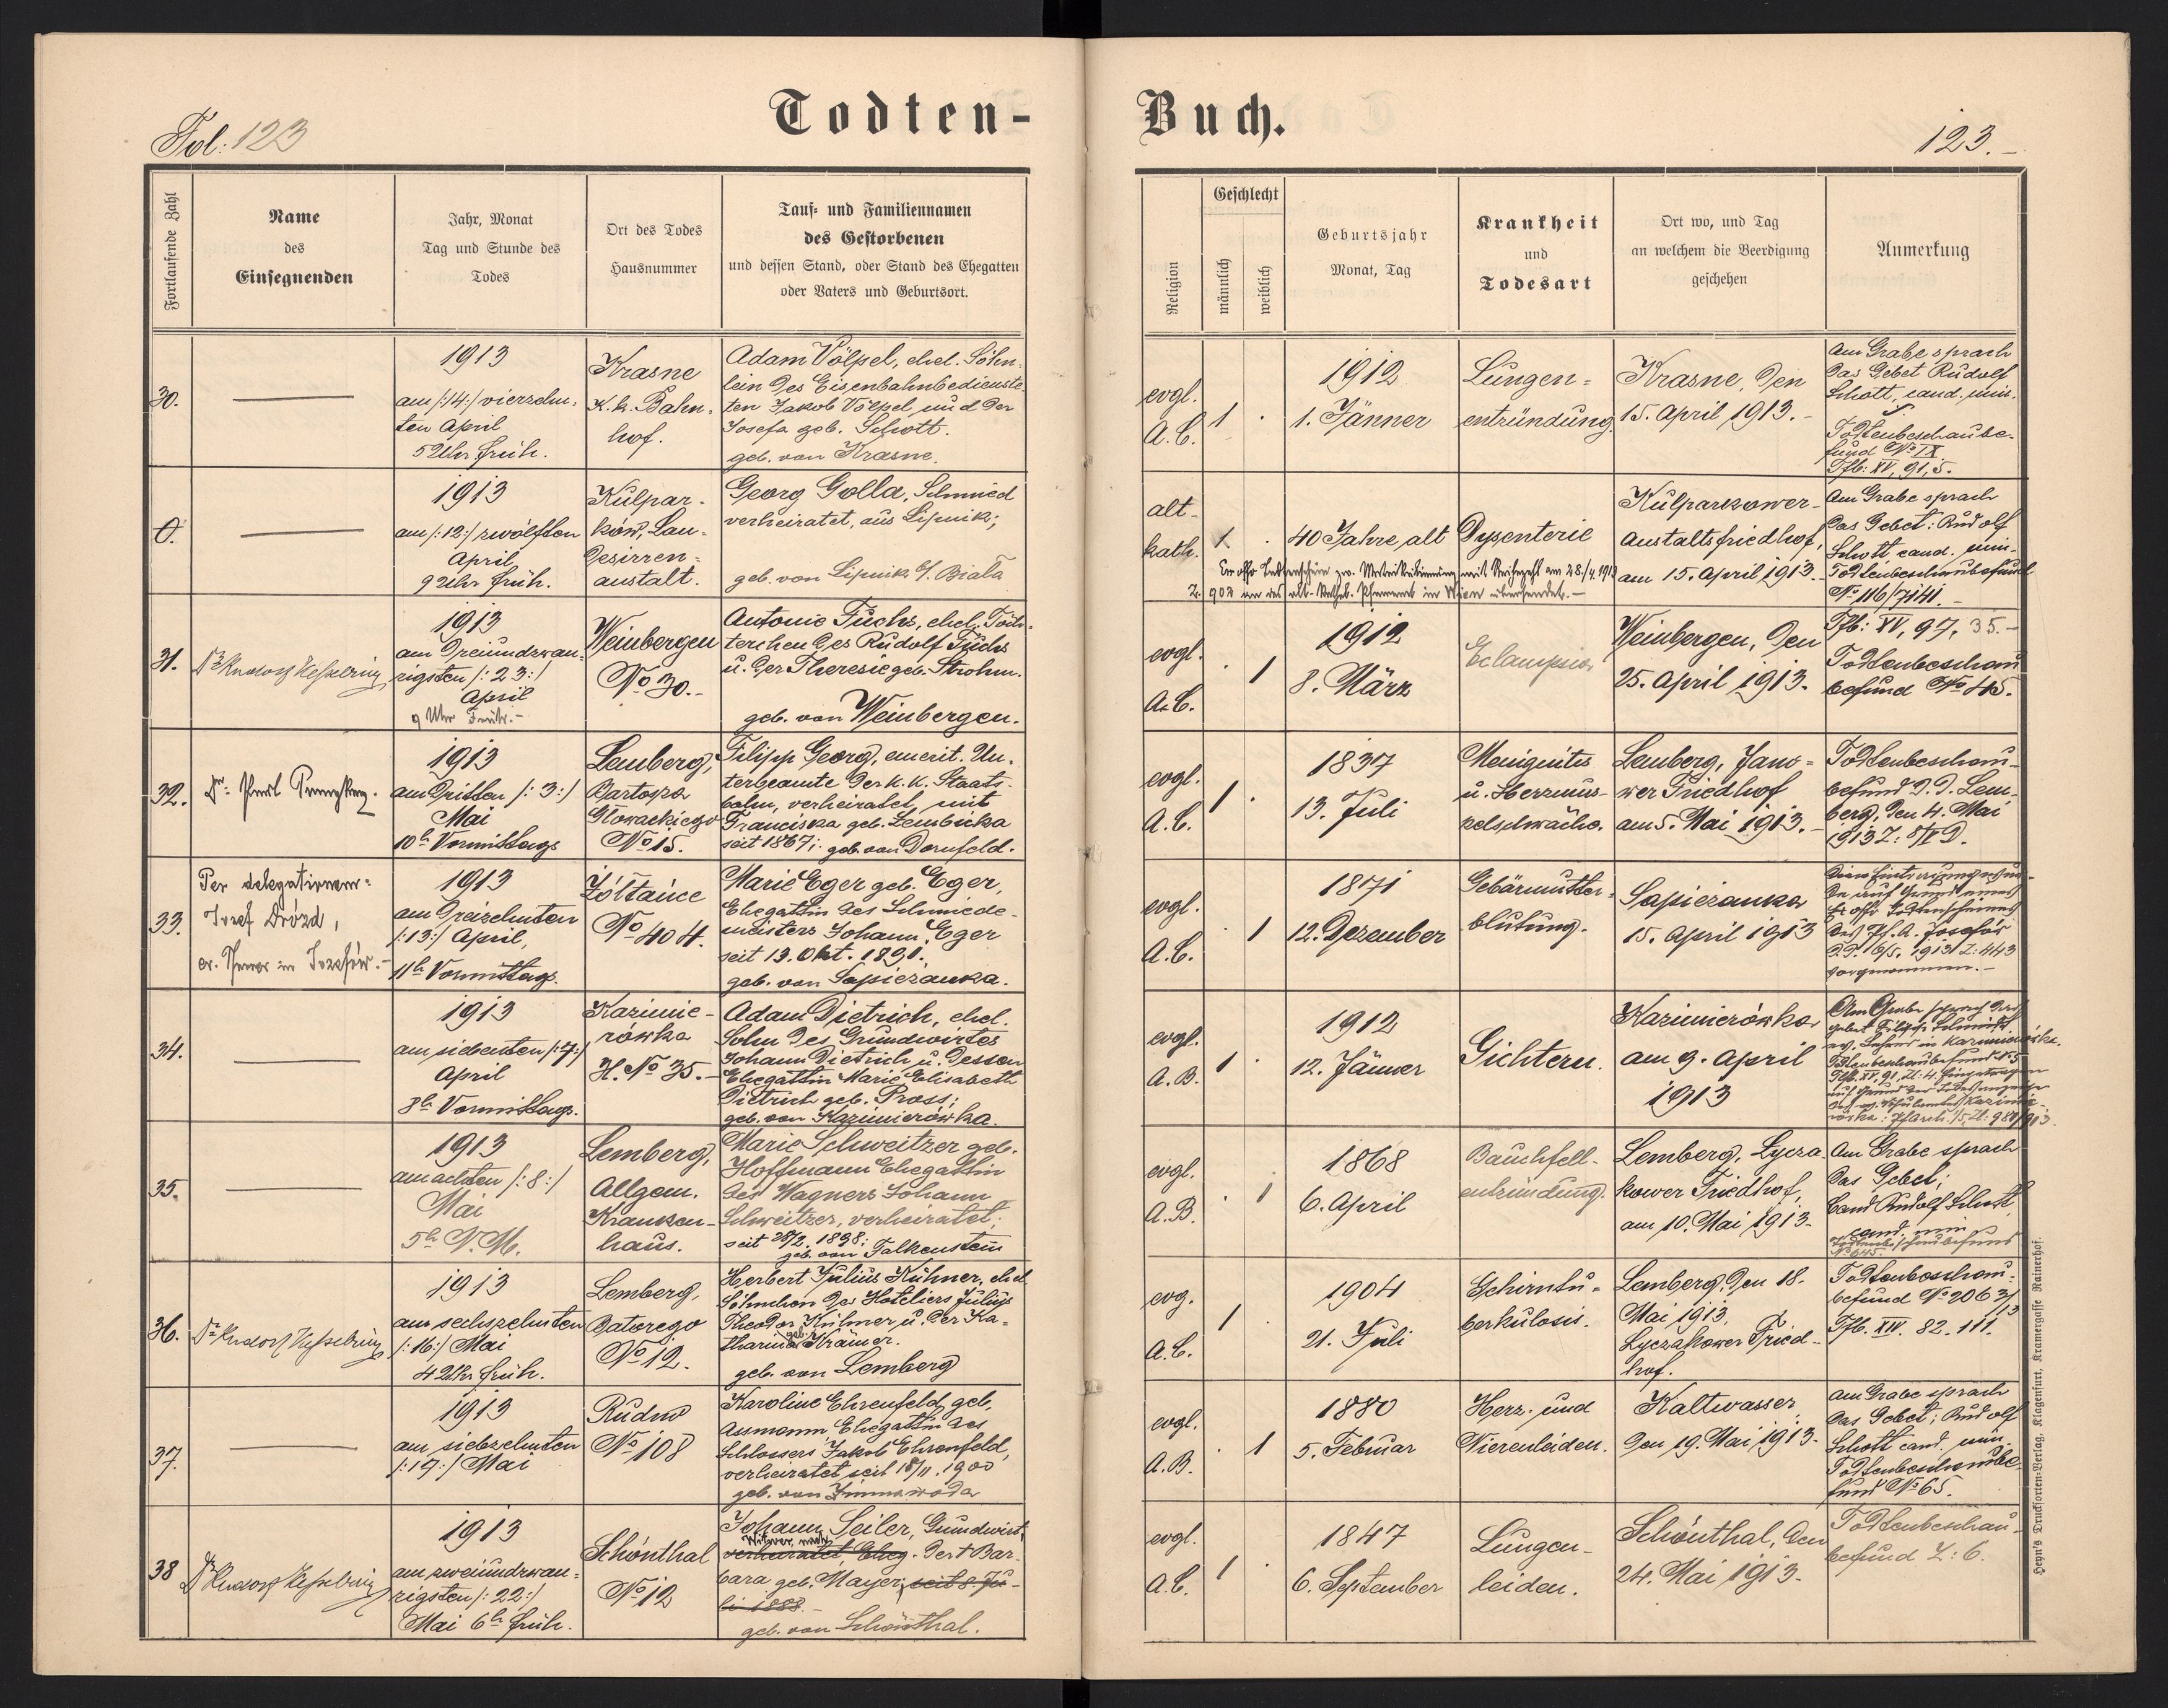 Todten-
Buch.
Fol: 123
123.
Fortlaufende Zahl
Name
des
Einsegnenden
Jahr, Monat
Tag und Stunde des
Todes
Ort des Todes
Hausnummer
Tauf- und Familiennamen
des Gestorbenen
und dessen Stand, oder Stand des Ehegatten
oder Vaters und Geburtsort.
Religion
Geschlecht
männlich
weiblich
Geburtsjahr
Monat, Tag
Krankheit
und
Todesart
Ort wo, und Tag
an welchem die Beerdigung
geschehen
Anmerkung
30.
1913
am /:14:/ vierzehn-
ten April
5 Uhr früh.
Krasne
K.k. Bahn-
hof.
Adam Völpel, ehel. Söhn-
lein des Eisenbahnbedienste-
ten Jakob Völpel und der
Josefa geb. Schott.
geb. von Krasne.
evgl.
A.C.
1 .
1912
1. Jänner
Lungen-
entzündung.
Krasne, den
15. April 1913.-
Am Grabe sprach
das Gebet Rudolf
Schott, cand. min.
Todtenbeschaube-
fund No IX
Tfb: XV, 91, 5.
0.
1913
am /:12:/ zwölften
April
9 Uhr früh.
Kulpar-
ków, Lan-
desirren-
anstalt.
Georg Golla, Schmied
verheiratet, aus Lipnik;
geb. von Lipnik b/ Biała
alt-
kath.
1 .
40 Jahre alt
Dysenterie
Kulparkower-
Anstaltsfriedhof,
am 15. April 1913.
Am Grabe sprach
das Gebet: Rudolf
Schott cand. min.
Todtenbeschaubefund
No 116/7141.-
Z. 902 an das alt-kathol. Pfarramt in Wien übersendet.-
31.
Dr Rudolf Kesselring
1913
am dreiundzwan-
zigsten /:23:/
April
9 Uhr Früh.-
Weinbergen
No 30.-
Antonie Fuchs, ehel. Töch-
terchen des Rudolf Fuchs
u. der Theresie geb. Strohm.
geb. von Weinbergen.
evgl.
A.C.
. 1
1912
8. März
Eclampsia
Weinbergen, den
25. April 1913.
Tfb: XV, 97, 35.-
Todtenbeschau
befund No 45.
32.
1913
am dritten /:3:/
Mai
10h Vormittags
Lemberg,
Bartosza
Głowackiego
No 15.
Filipp Georg, emerit. Un-
terbeamte der k.k. Staats-
bahn, verheiratet, mit
Franciska geb. Lembicka
seit 1867; geb. von Dornfeld.
evgl.
A.C.
1 .
1837
13. Juli
Menigitis
u. Herzmus-
kelschwäche.
Lemberg, Jano-
wer Friedhof
am 5. Mai 1913.-
Todtenbeschau-
befund d.d. Lem-
berg, den 4. Mai
1913
33.
Per delegationem:
Josef Drózd,
ev. Pfarrer in Josefów.-
1913
am dreizehnten
/:13:/ April,
11h Vormittags.
Żółtańce
No 404.
Marie Eger geb. Eger,
Ehegattin des Schmiede-
meisters Johann Eger
seit 19. Okt. 1891.
geb. von Sapieżanka.
evgl.
A.C.
. 1
1871
12. Dezember
Gebärmutter-
blutung.
Sapieżanka
15. April 1913
Diese Eintragung wur-
de auf Grund eines
des Pf. A. Josefów
d.d. 6/5. 1913 Z: 443
vorgenommen.-
34.
1913
am siebenten /:7:/
April
8h Vormittags.
Kazimie-
rówka
H. No 35.-
Adam Dietrich, ehel.
Sohn des Grundwirtes
Johann Dietrich u. dessen
Ehegattin Marie Elisabeth
Dietrich geb. Pross;
geb. von Kazimierówka.
evgl.
A.B.
1 .
1912
12. Jänner
Gichtern.
Kazimierówka
am 9. April
1913
Am Grabe sprach das
Gebet Filipp Schmidt
ev. Lehrer in Kazimierówka.
35.
1913
am achten /:8:/
Mai
5h N.M.
Lemberg,
Allgem.
Kranken-
haus.
Marie Schweitzer geb.
Hoffmann Ehegattin
des Wagners Johann
Schweitzer, verheiratet;
seit 28/2. 1898;
geb. von Falkenstein
evgl.
A.B.
. 1
1868
6. April
Bauchfell-
entzündung.
Lemberg, Lycza-
kower Friedhof,
am 10. Mai 1913.
Am Grabe sprach
das Gebet;
Cand Rudolf Schott,
cand. min
36.
Dr Rudolf Kesselring
1913
am sechszehnten
/:16:/ Mai
4 Uhr früh.
Lemberg,
Batorego
No 12.
Herbert Julius Kühner, ehel.
Söhnchen des Hoteliers Julius
Theodor Kühner u. der Ka-
tharina geb. Krämer.
geb. von Lemberg
evg.
A.C.
1
1904
21. Juli
Gehirntu-
berkulosis.
Lemberg, den 18.
Mai 1913,
Lyczakower Fried-
hof.
Todtenbeschau-
befund No 2063/13
Tfb. XIV. 82. 111.
37.
1913
am siebzehnten
/:17:/ Mai
Rudno
No 108
Karoline Ehrenfeld, geb.
Assmann, Ehegattin des
Schlossers Jakob Ehrenfeld,
verheiratet seit 18/11. 1900
geb. von Zimnawoda
evgl.
A.B.
. 1
1880
5. Februar
Herz- und
Nierenleiden.
Kaltwasser
den 19. Mai 1913.
Am Grabe sprach
das Gebet; Rudolf
Schott cand. min.
Todtenbeschaube-
fund No 65.
38
Dr Rudolf Kesselring
1913
am zweiundzwan-
zigsten /:22:/
Mai 6h früh.
Schönthal
No 12
Johann Seiler, Grundwirt,
Witwer, nach
verheiratet, Eheg. der † Bar-
bara geb. Mayer; seit 8. Ju-
li 1888.-
geb. von Schönthal.
evgl.
A.C.
1 .
1847
6. September
Lungen-
leiden.
Schönthal, den
24. Mai 1913.
Todtenbeschau-
befund Z: 6.
Heyn's Drucksorten-Verlag, Klagenfurt, Kramergasse Rainerhof.